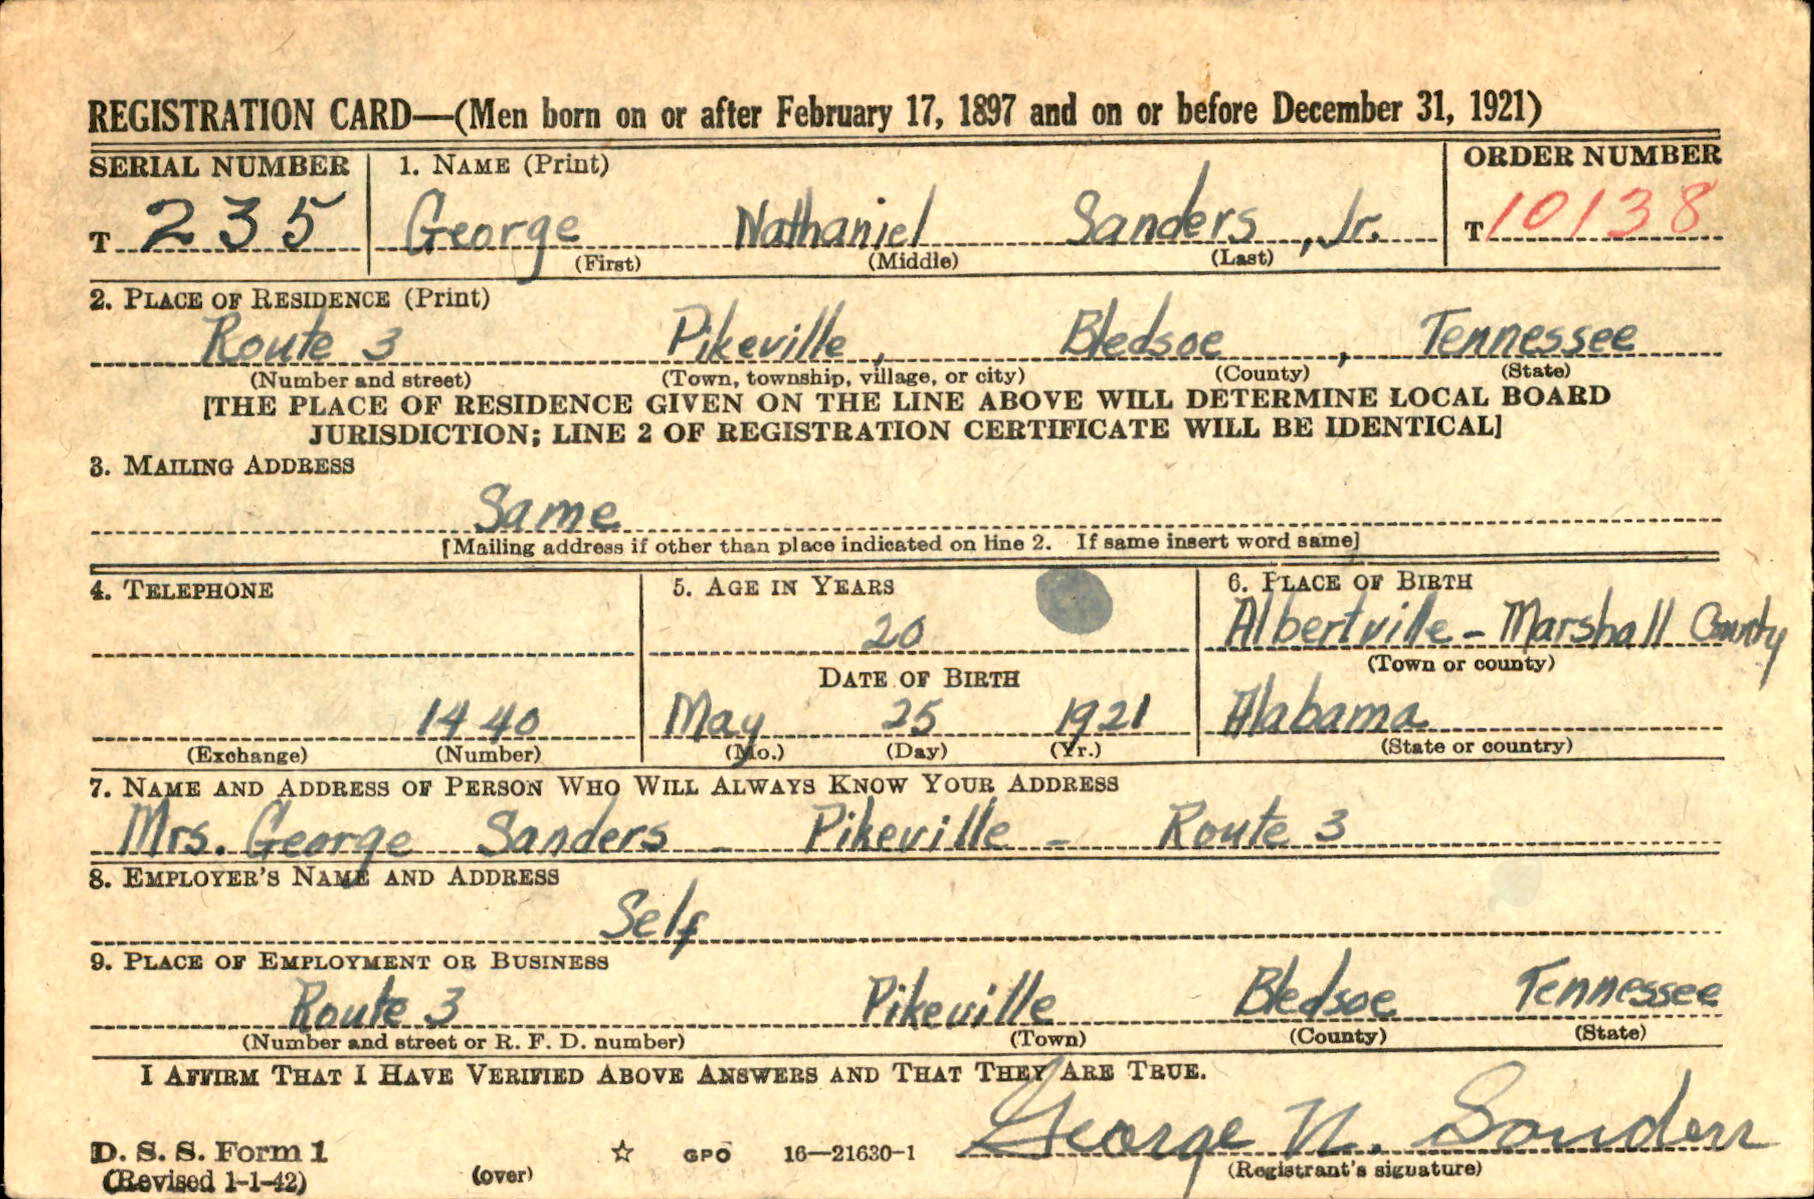 REGISTRATION CARD—(Men born on or after February 17, 1897 and on or before December 31, 1921)
SERIAL NUMBER 1. NAME (Print) ORDER NUMBER
T 235 George Nathaniel Sanders, Jr. T 10138
(First) (Middle) (Last)
2. PLACE OF RESIDENCE (Print)
Route 3 Pikeville, Bledsoe, Tennessee
(Number and street) (Town, township, village, or city) (County) (State)
[THE PLACE OF RESIDENCE GIVEN ON THE LINE ABOVE WILL DETERMINE LOCAL BOARD
JURISDICTION; LINE 2 OF REGISTRATION CERTIFICATE WILL BE IDENTICAL]
3. MAILING ADDRESS
Same
[Mailing address if other than place indicated on line 2. If same insert word same]
4. TELEPHONE 5. AGE IN YEARS 6. PLACE OF BIRTH
20 Albertville - Marshall County
DATE OF BIRTH (Town or county)
1440 May 25 1921 Alabama
(Exchange) (Number) (Mo.) (Day) (Yr.) (State or country)
7. NAME AND ADDRESS OF PERSON WHO WILL ALWAYS KNOW YOUR ADDRESS
Mrs. George Sanders - Pikeville - Route 3
8. EMPLOYER'S NAME AND ADDRESS
Self
9. PLACE OF EMPLOYMENT OR BUSINESS
Route 3 Pikeville Bledsoe Tennessee
(Number and street or R. F. D. number) (Town) (County) (State)
I AFFIRM THAT I HAVE VERIFIED ABOVE ANSWERS AND THAT THEY ARE TRUE.
George N. Sanders
D. S. S. Form 1 ☆ GPO 16—21630-1 (Registrant's signature)
(Revised 1-1-42) (over)